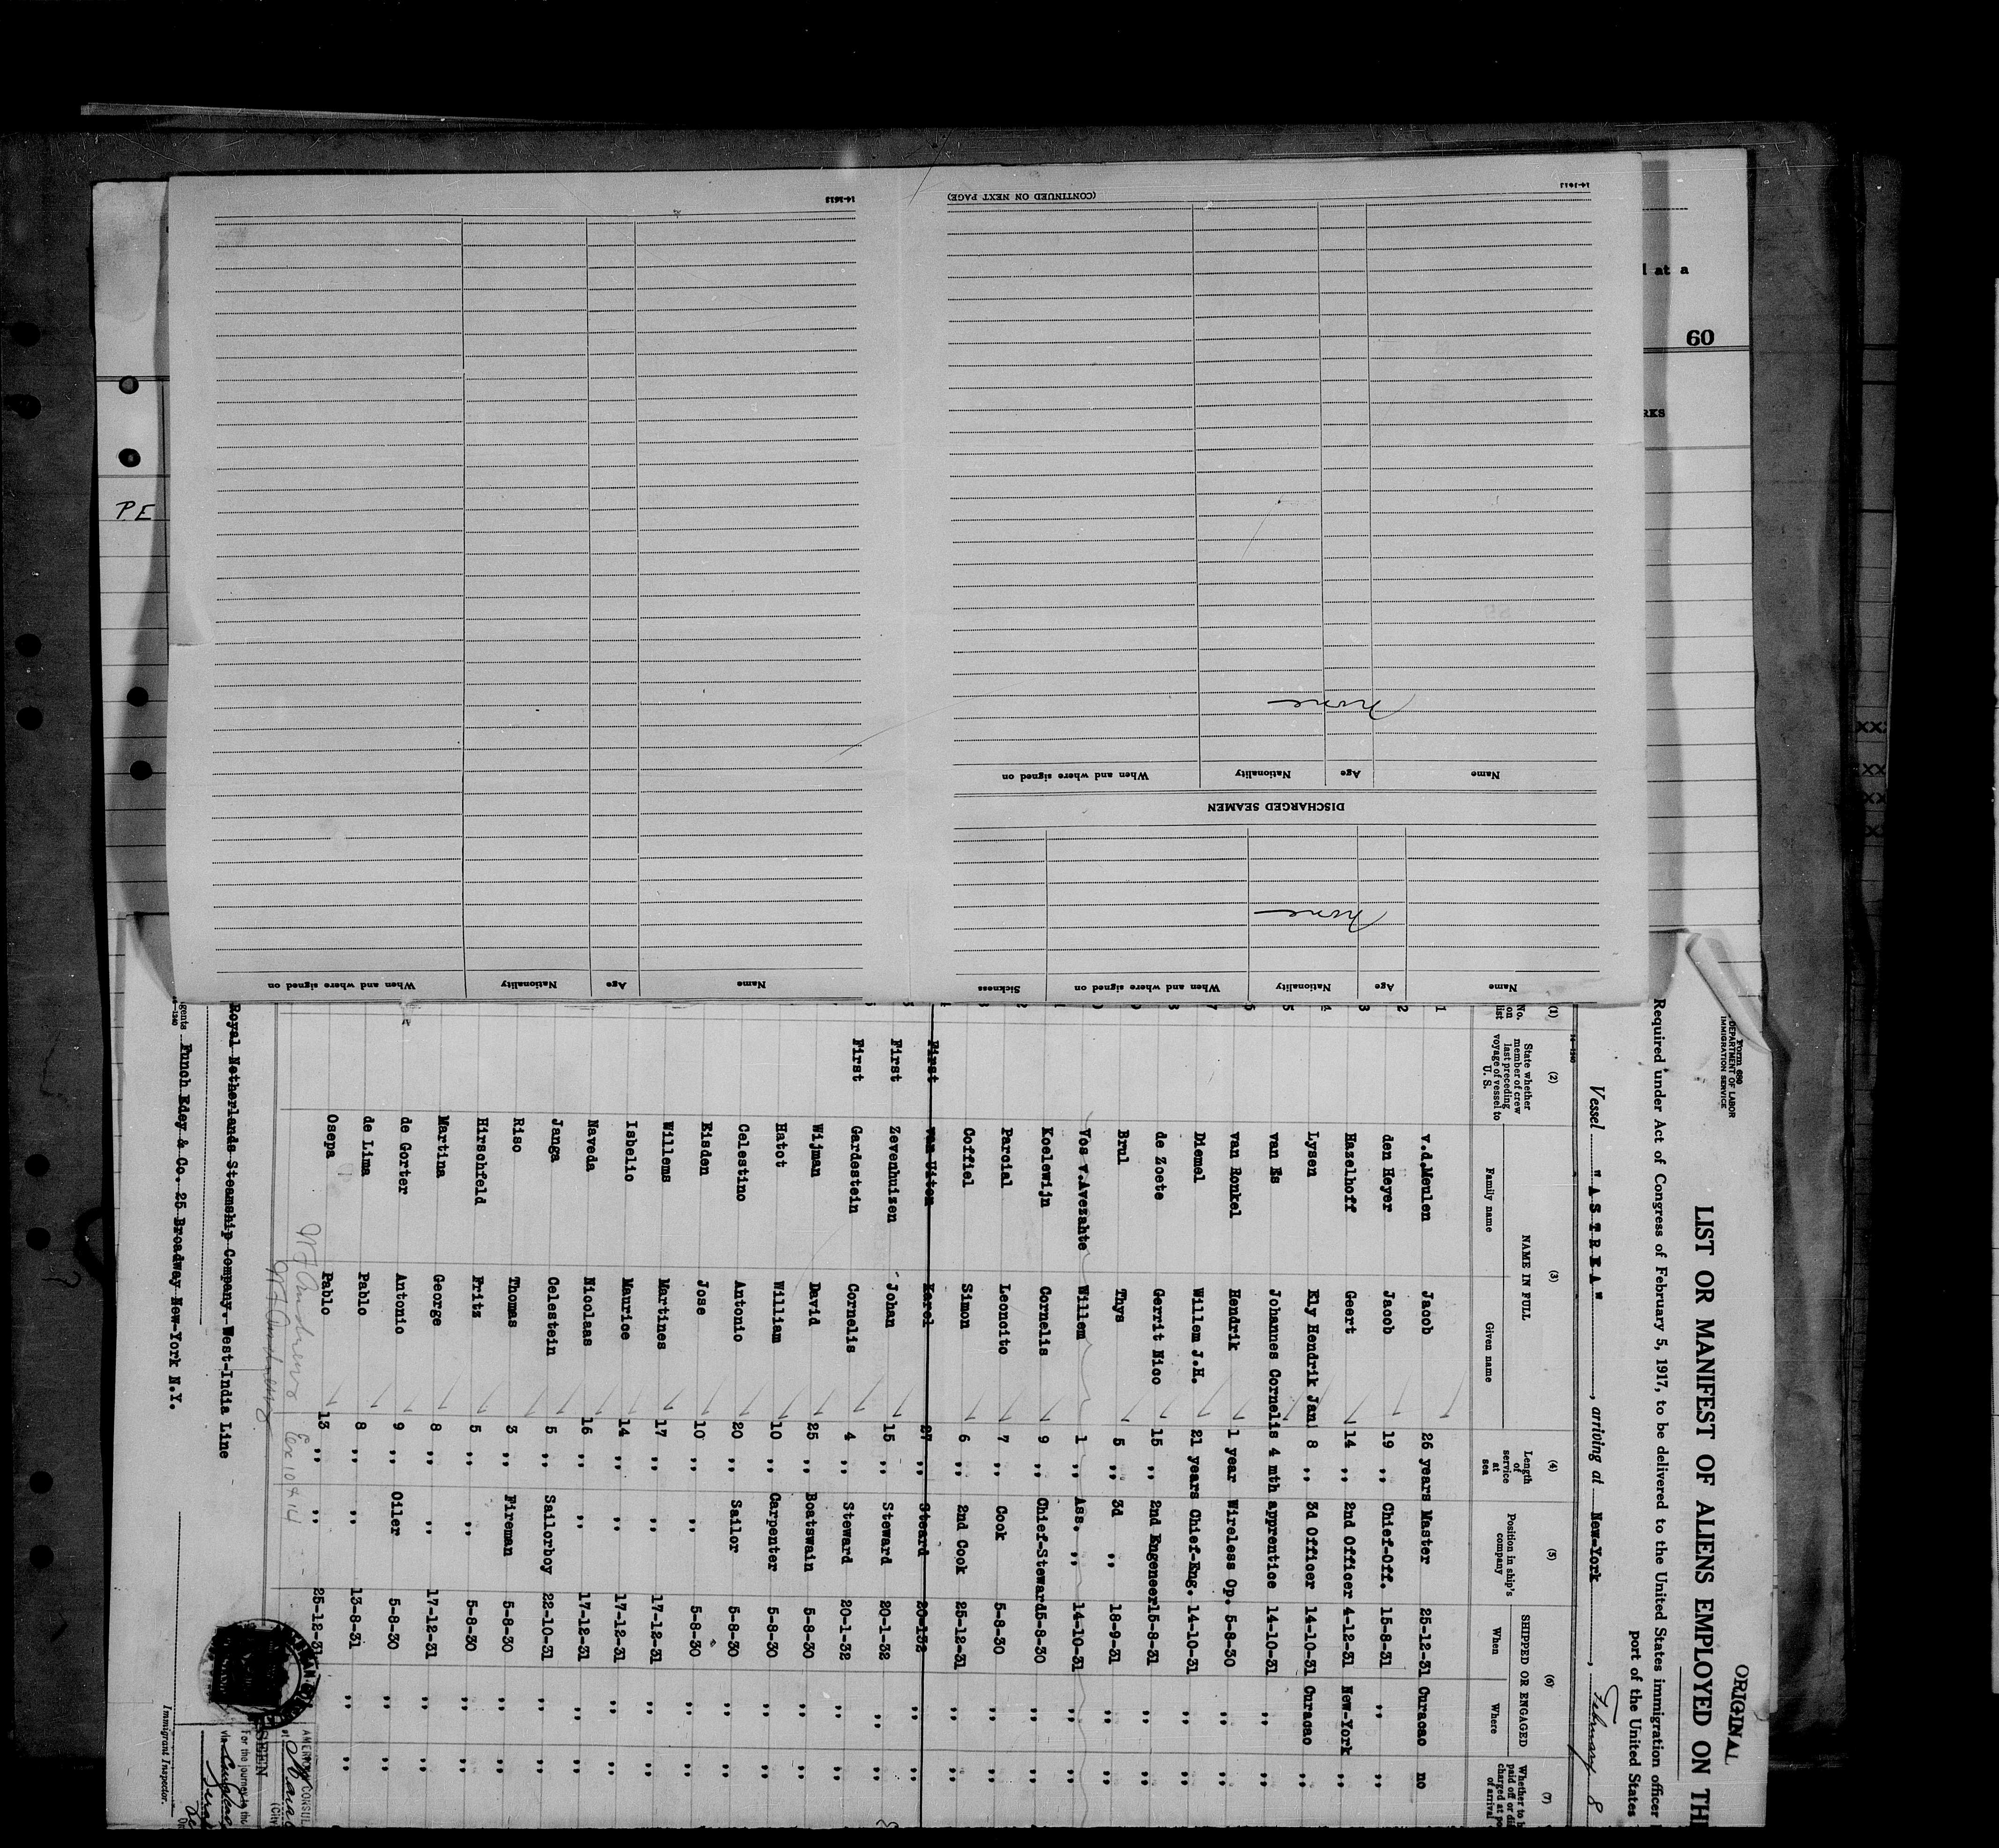 ORIGINAL
Form 680
DEPARTMENT OF LABOR
IMMIGRATION SERVICE
LIST OR MANIFEST OF ALIENS EMPLOYED ON TH
Required under Act of Congress of February 5, 1917, to be delivered to the United States immigration officer
port of the United States
Vessel "ASTREA", arriving at New-York, February 8
(1) (2) (3) (4) (5) (6) (7)
No. on list
State whether member of crew last preceding voyage of vessel to U. S.
NAME IN FULL
Family name Given name
Length of service at sea
Position in ship's company
SHIPPED OR ENGAGED
When Where
Whether to b paid off or di charged at po of arrival
1 v.d.Meulen Jacob 26 years Master 25-12-31 Curacao no
2 den Heyer Jacob 19 ,, Chief-Off. 15-8-31 ,, ,,
3 Hazelhoff Geert 14 ,, 2nd Officer 4-12-31 New-York ,,
4 Lysen Ely Hendrik Jan 8 ,, 3d Officer 14-10-31 Curacao ,,
5 van Es Johannes Cornelis 4 mth apprentice 14-10-31 ,, ,,
6 van Ronkel Hendrik 1 year Wireless Op. 5-8-30 ,, ,,
7 Diemel Willem J.H. 21 years Chief-Eng. 14-10-31 ,, ,,
8 de Zoete Gerrit Nico 15 ,, 2nd Engeneer 15-8-31 ,, ,,
Brul Thys 5 ,, 3d ,, 18-9-31 ,, ,,
Vos v.Avezahte Willem 1 ,, Ass. ,, 14-10-31 ,, ,,
Koelewijn Cornelis 9 ,, Chief-Steward 5-8-30 ,, ,,
Parcial Leoncito 7 ,, Cook 5-8-30 ,, ,,
Coffiel Simon 6 ,, 2nd Cook 25-12-31 ,, ,,
First van Uitem Karel 27 ,, Steard 20-132 ,, ,,
First Zevenhuizen Johan 15 ,, Steward 20-1-32 ,, ,,
First Gardestein Cornelis 4 ,, Steward 20-1-32 ,, ,,
Wijman David 25 ,, Boatswain 5-8-30 ,, ,,
Hatot William 10 ,, Carpenter 5-8-30 ,, ,,
Celestino Antonio 20 ,, Sailor 5-8-30 ,, ,,
Eisden Jose 10 ,, ,, 5-8-30 ,, ,,
Willems Martines 17 ,, ,, 17-12-31 ,, ,,
Isbelio Maurice 14 ,, ,, 17-12-31 ,, ,,
Naveda Nicolaas 16 ,, ,, 17-12-31 ,, ,,
Janga Celestein 5 ,, Sailorboy 22-10-31 ,, ,,
Riso Thomas 3 ,, Fireman 5-8-30 ,, ,,
Hirschfeld Fritz 5 ,, ,, 5-8-30 ,, ,,
Martina George 8 ,, ,, 17-12-31 ,, ,,
de Gorter Antonio 9 ,, Oiler 5-8-30 ,, ,,
de Lima Pablo 8 ,, ,, 13-8-31 ,, ,,
Osepa Pablo 13 ,, ,, 25-12-31
Royal Netherlands Steamship Company. West-India Line
gents Funch Edey & Co. 25 Broadway New-York N.Y.
Immigrant Inspector.
AMERICAN CONSUL
SEEN
For the journey to the
via
Name Age Nationality When and where signed on Sickness
none
DISCHARGED SEAMEN
Name Age Nationality When and where signed on
none
(CONTINUED ON NEXT PAGE)
14-1611
Name Age Nationality When and where signed on
14-1611
at a
60
RKS
PE